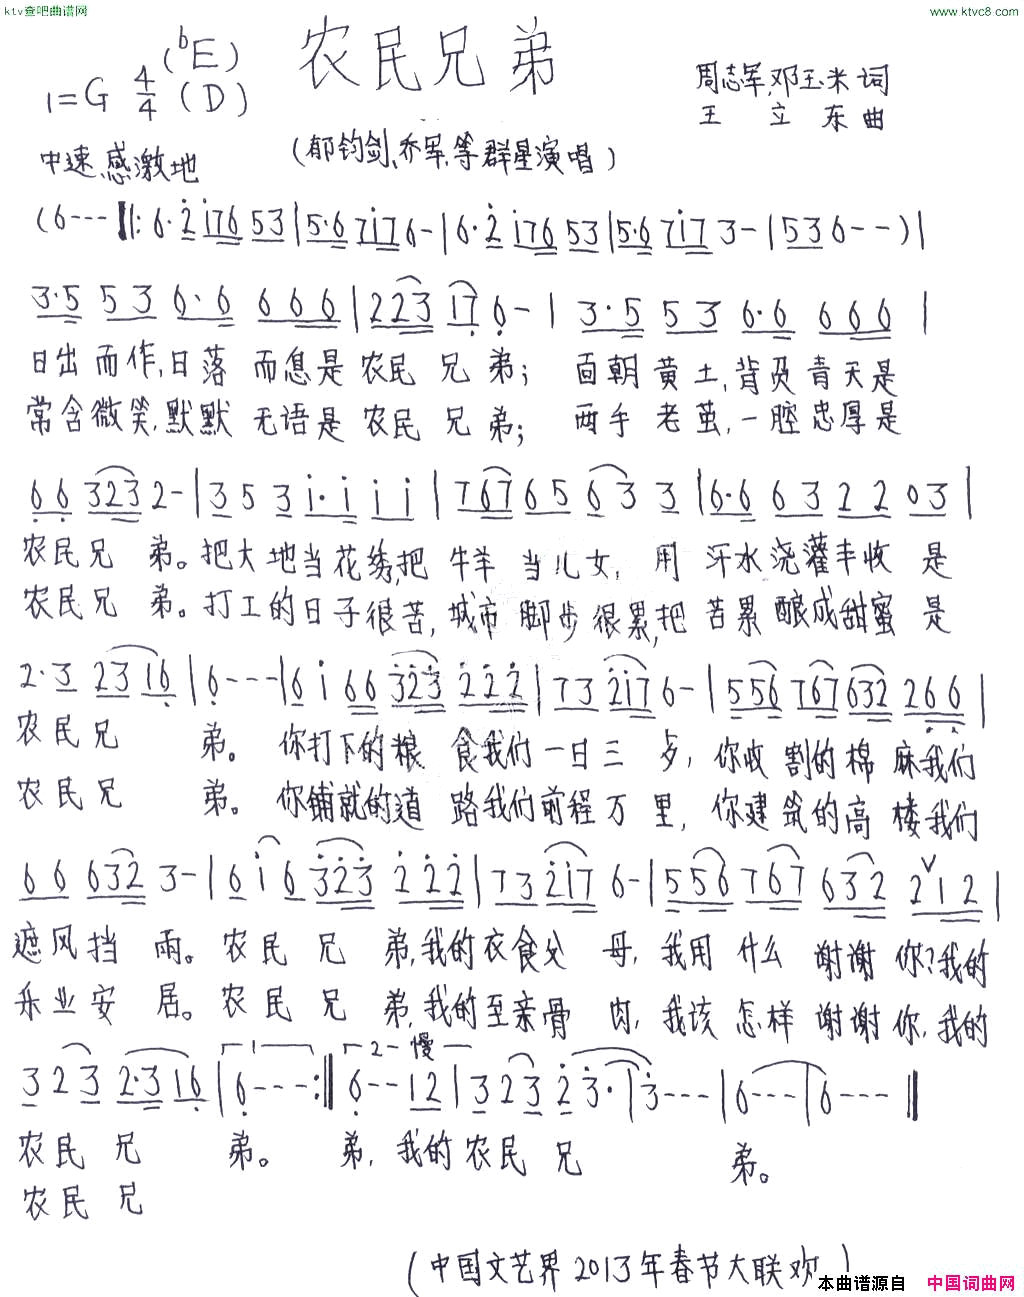 ktv查吧曲谱网
www.ktvc8.com
农民兄弟
1=G 4/4 (bE) (D)
周志军,邓玉米词
王立东曲
中速、感激地
(郁钧剑、乔军,等群星演唱)
(6--- ‖: 6·2 176 53 | 5·6 717 6- | 6·2 176 53 | 5·6 717 3- | 533 6--) |
3·5 53 6·6 666 | 223 17 6- | 3·5 53 6·6 666 |
日出而作,日落而息是农民兄弟; 面朝黄土,背负青天是
常含微笑,默默无语是农民兄弟; 两手老茧,一腔忠厚是
66 323 2- | 3 5 3 1·1 1 1 | 767 65 63 3 | 6·6 63 22 03 |
农民兄弟。把大地当花绣,把牛羊当儿女,用汗水浇灌丰收是
农民兄弟。打工的日子很苦,城市脚步很累,把苦累酿成甜蜜是
2·3 2316 | 6--- | 6 1 66 323 222 | 73 217 6- | 556 767 632 266 |
农民兄弟。你打下的粮食我们一日三歺,你收割的棉麻我们
农民兄弟。你铺就的道路我们前程万里,你建筑的高楼我们
66 632 3- | 6 1 6 323 222 | 73 217 6- | 556 767 632 2∨12 |
遮风挡雨。农民兄弟,我的衣食父母,我用什么谢谢你?我的
乐业安居。农民兄弟,我的至亲骨肉,我该怎样谢谢你,我的
3 2 3 2·3 16 | 1 6--- :‖ 2 慢 6-- 12 | 3 2 3 2 3· | 3--- | 6--- | 6--- ‖
农民兄弟。弟,我的农民兄弟。
农民兄
(中国文艺界2013年春节大联欢)
本曲谱源自 中国词曲网